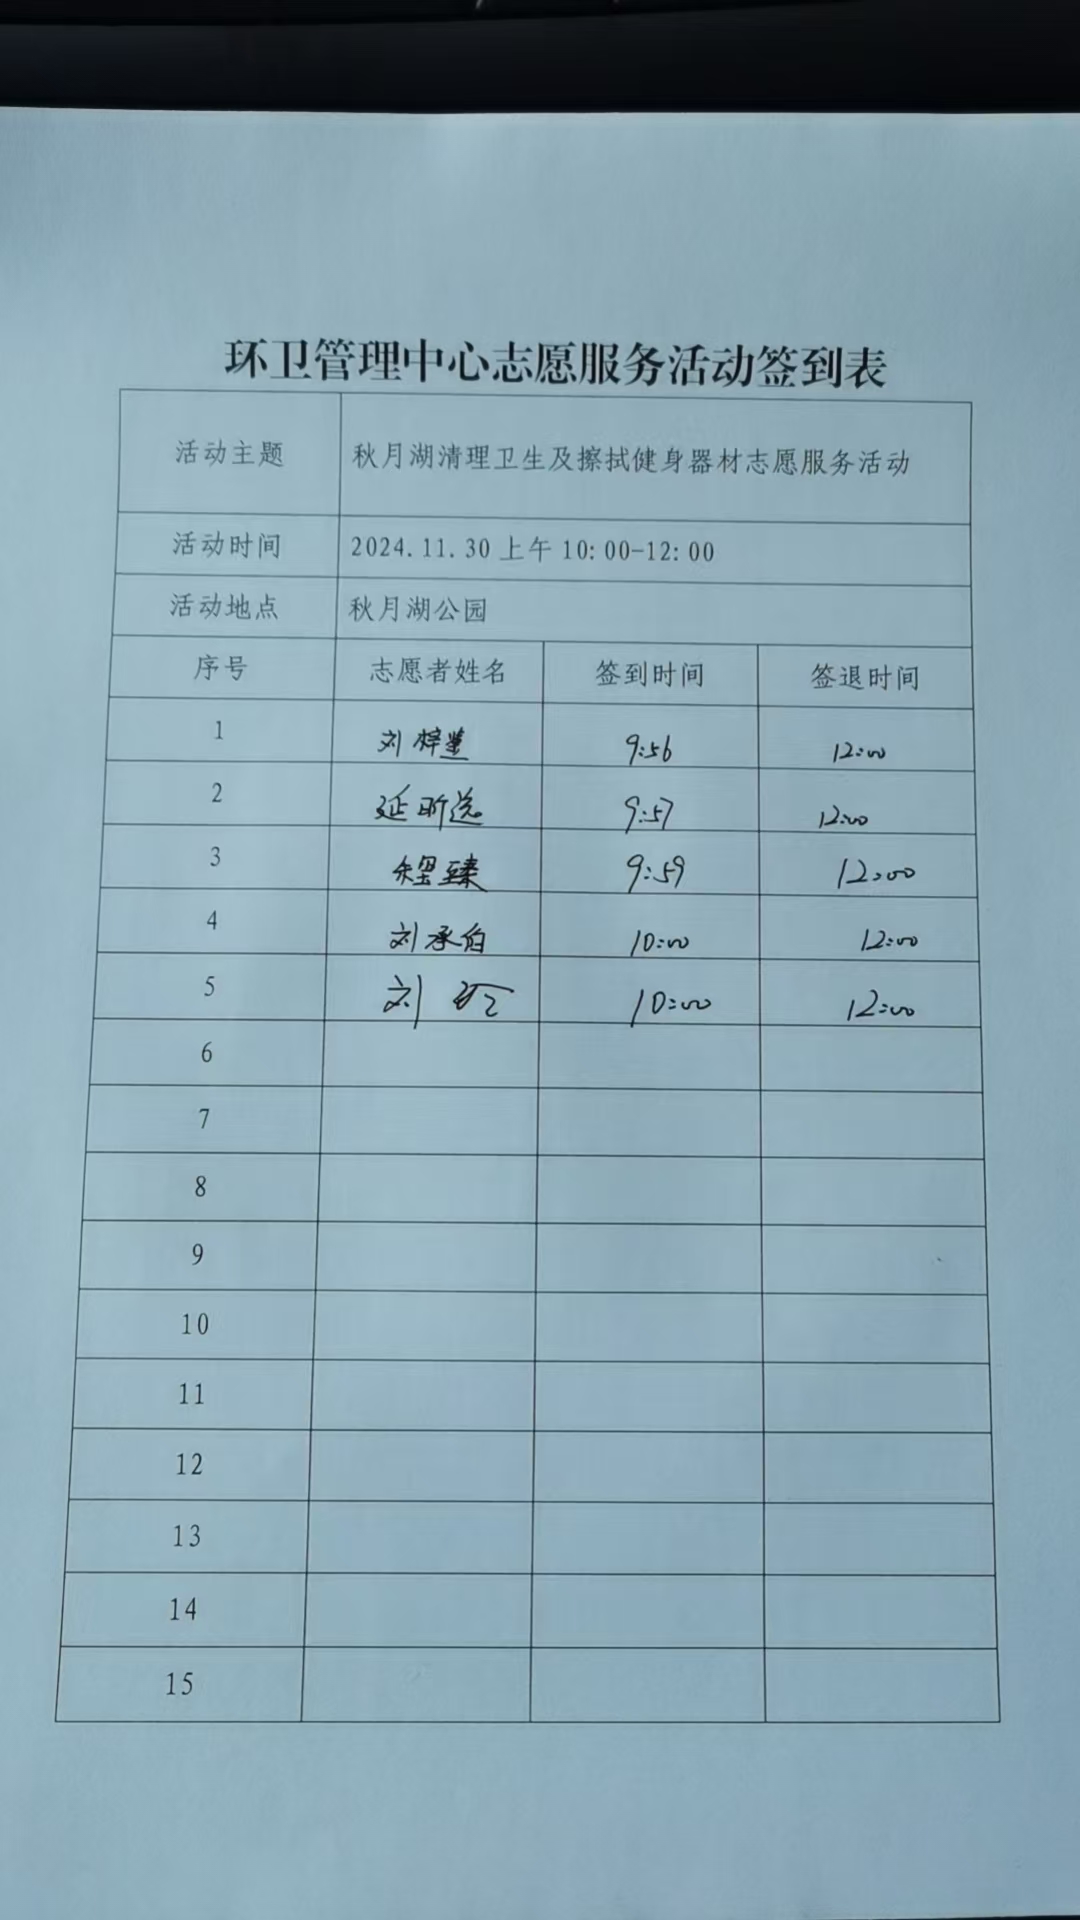 环卫管理中心志愿服务活动签到表
活动主题 秋月湖清理卫生及擦拭健身器材志愿服务活动
活动时间 2024.11.30 上午 10:00-12:00
活动地点 秋月湖公园
序号 志愿者姓名 签到时间 签退时间
1 刘梓 9:56 12:00
2 延昕 9:57 12:00
3 9:59 12:00
4 刘承伯 10:00 12:00
5 刘 10:00 12:00
6
7
8
9
10
11
12
13
14
15